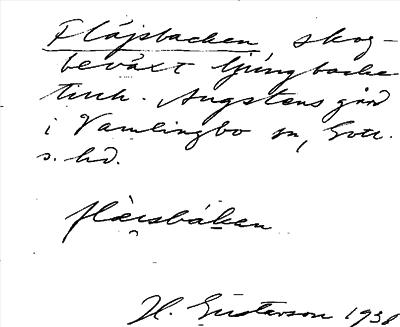 Flajsbacken, skog-
bevåxt ljungbacke
Augstens gård
i Vamlingbo sn, Gotl.
s. hd.
flàisbák̬en
H. Gustavson 1938